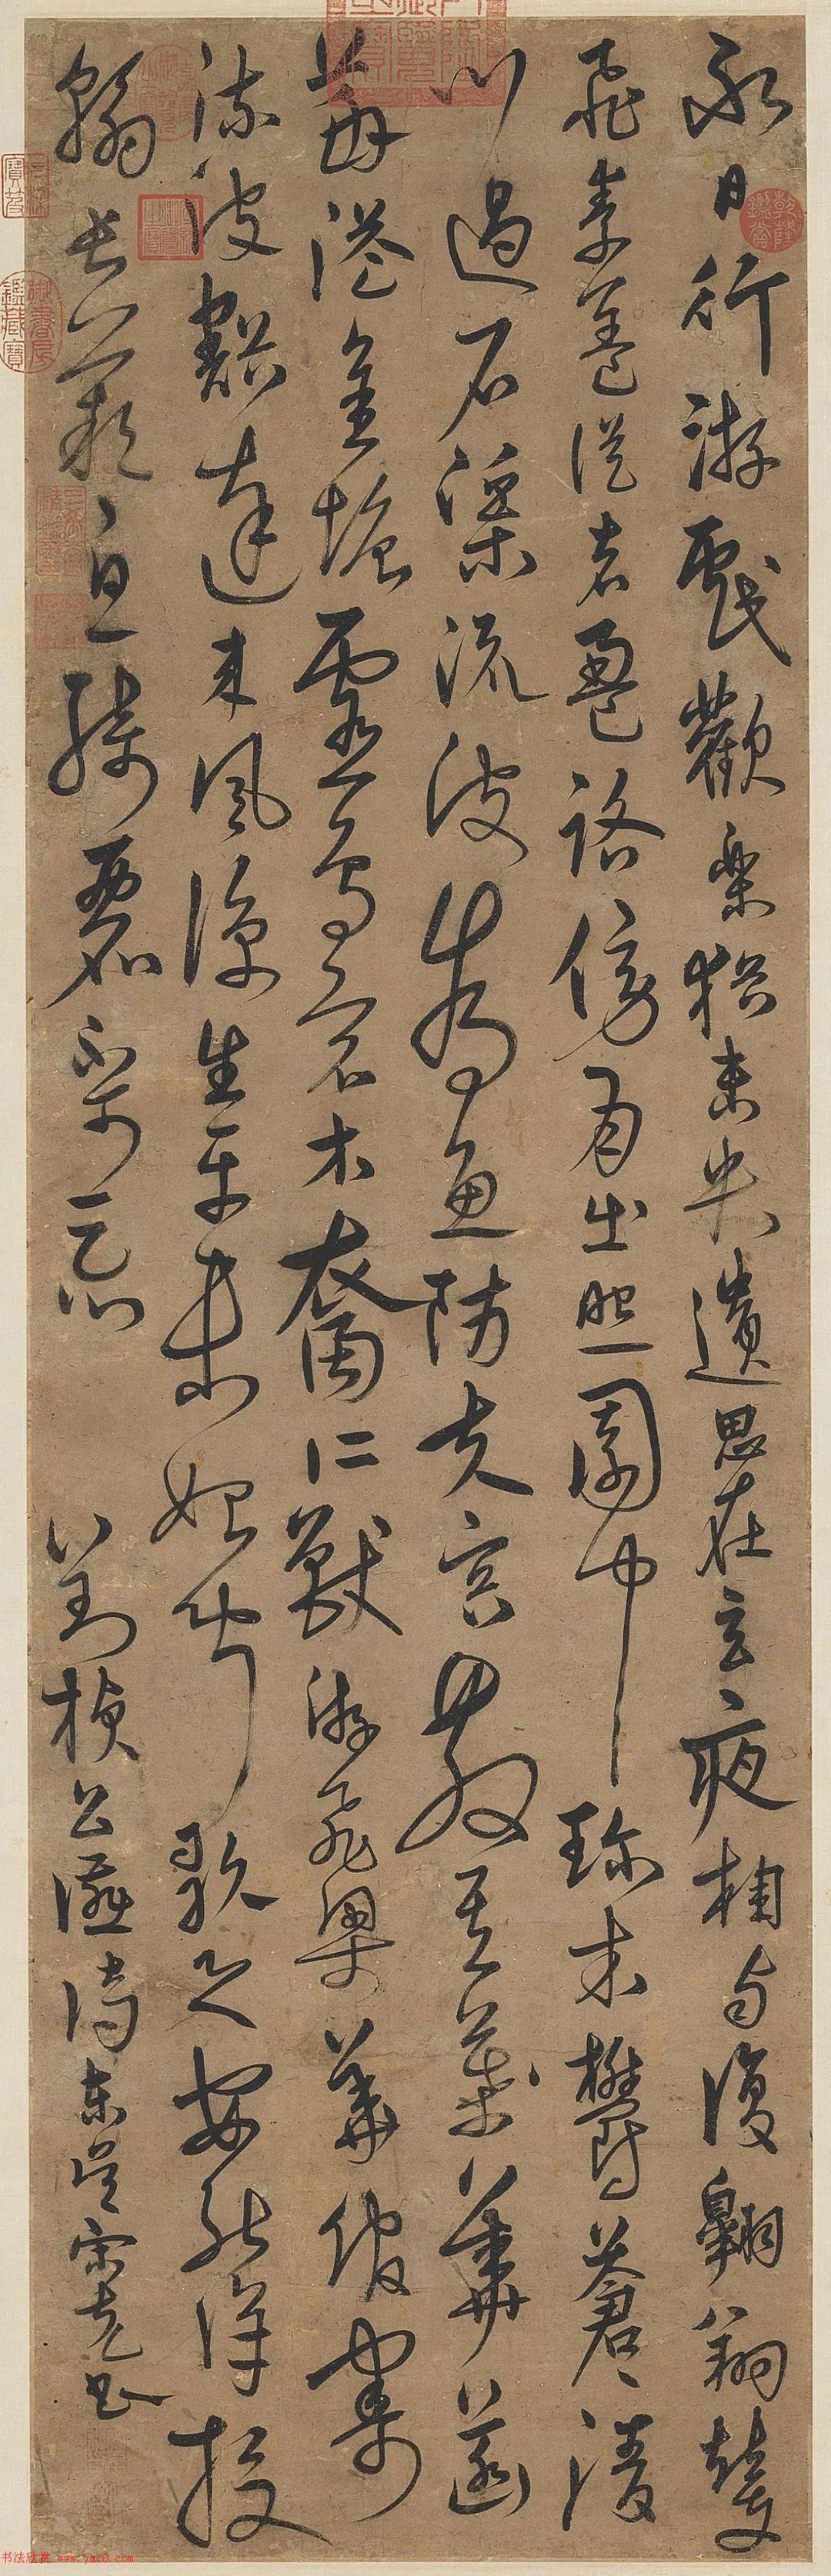 永日行游戏歡樂猶未央遺思在玄夜相与復翱翔輦
飛素蓋從者盈路傍月出照園中珍木鬱蒼蒼清
川過石渠流波為魚防芙蓉散其華菡
萏溢金塘靈鳥宿水裔仁獸游飛梁華館寄
流波豁達来風涼生平未始聞歌之安能詳投
翰長歎息綺麗不可忘
劉楨公讌詩東吳宋克書
乾隆鑑賞
書法欣賞 www.yacd.com